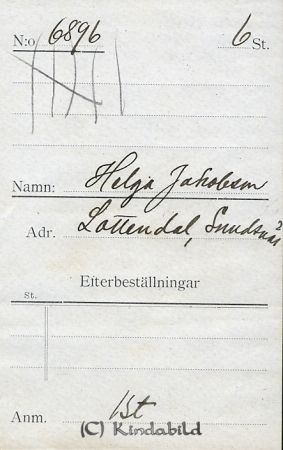 N:o 6896 6 St.
Namn: Helga Jakobson
Adr. Lottendal, Sundsnäs
Efterbeställningar
St.
Anm. 1 St
(C) Kindabild